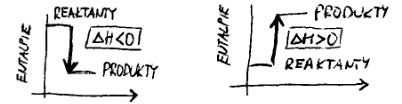 ENTALPIE
REAKTANTY
ΔH<0
PRODUKTY
ENTALPIE
PRODUKTY
ΔH>0
REAKTANTY